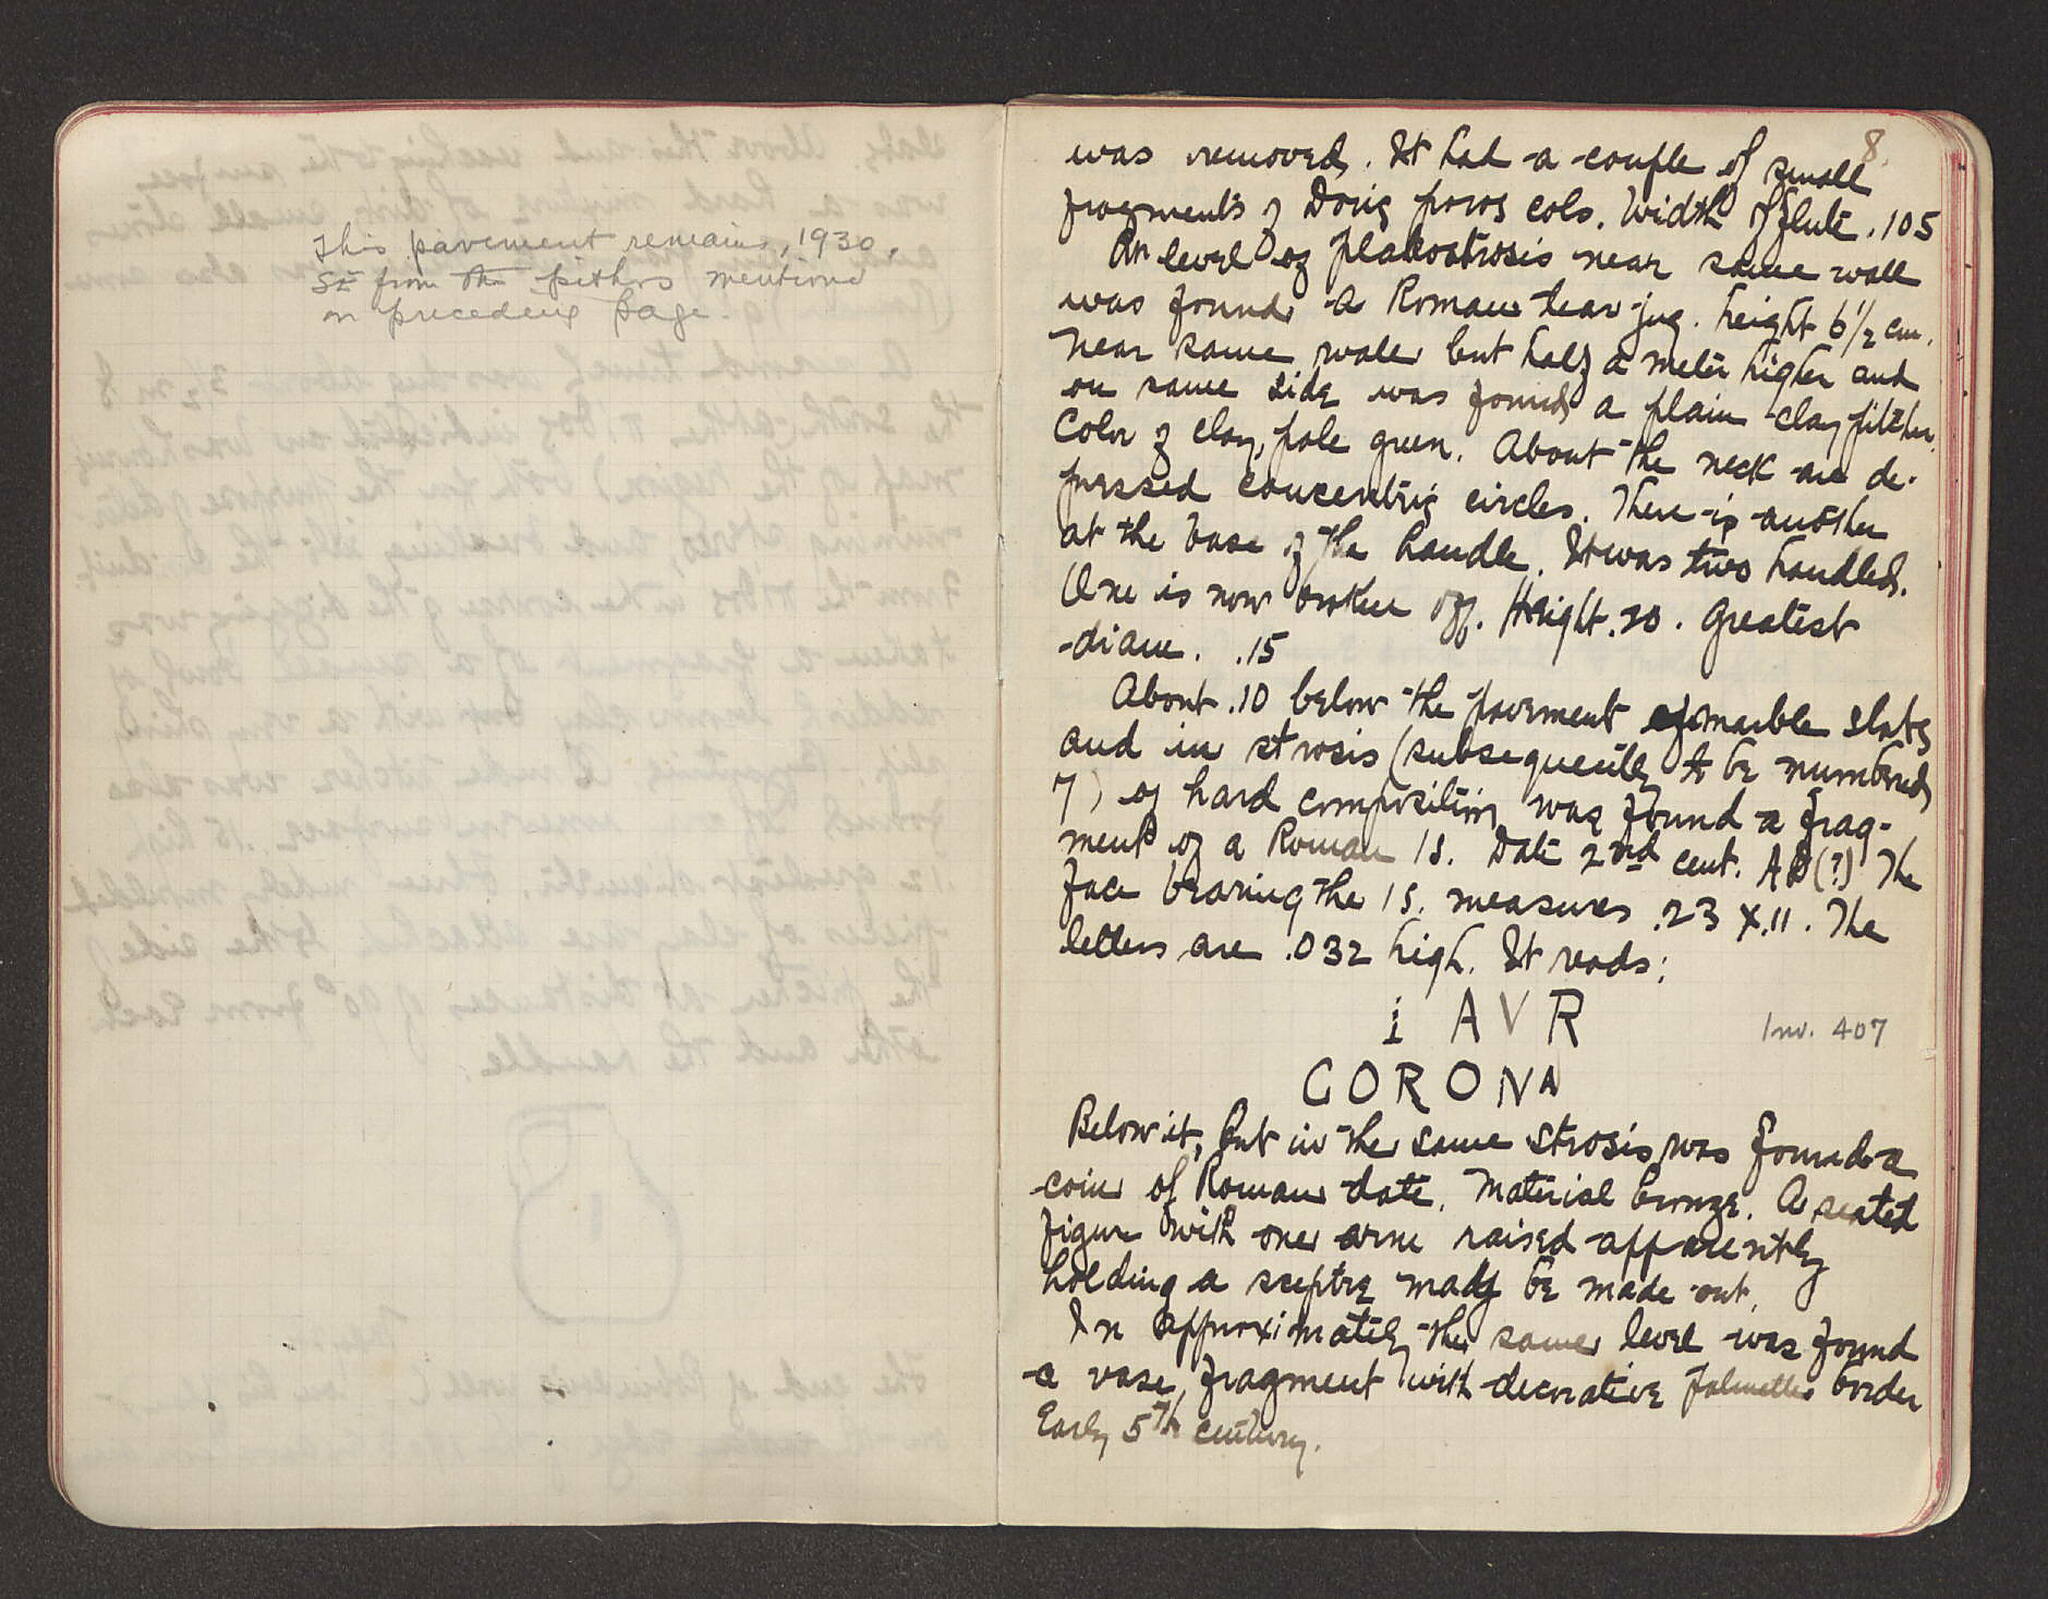 This pavement remains, 1930,
SE from the pithos mentioned
on preceding page.
8.
was removed. It had a couple of small
fragments of Doric poros cols. Width of flute .105
On level of plakostrosis near same wall
was found a Roman tear jug. height 6½ cm.
Near same wall but half a meter higher and
on same side was found a plain clay pitcher.
Color of clay, pale green. About the neck are de-
pressed concentric circles. There is another
at the base of the handle. It was two handled.
One is now broken off. Height .20. Greatest
diam. .15
About .10 below the pavement of marble slabs
and in strosis (subsequently to be numbered
7) of hard composition was found a frag-
ment of a Roman IS. Date 2nd cent. AD(?) The
face bearing the IS. measures .23 x .11. The
letters are .032 high. It reads:
i AVR
Inv. 407
CORONA
Below it, but in the same strosis was found a
coin of Roman date. Material bronze. A seated
figure with one arm raised apparently
holding a sceptre may be made out.
In approximately the same level was found
a vase fragment with decorative palmette border
Early 5th century.